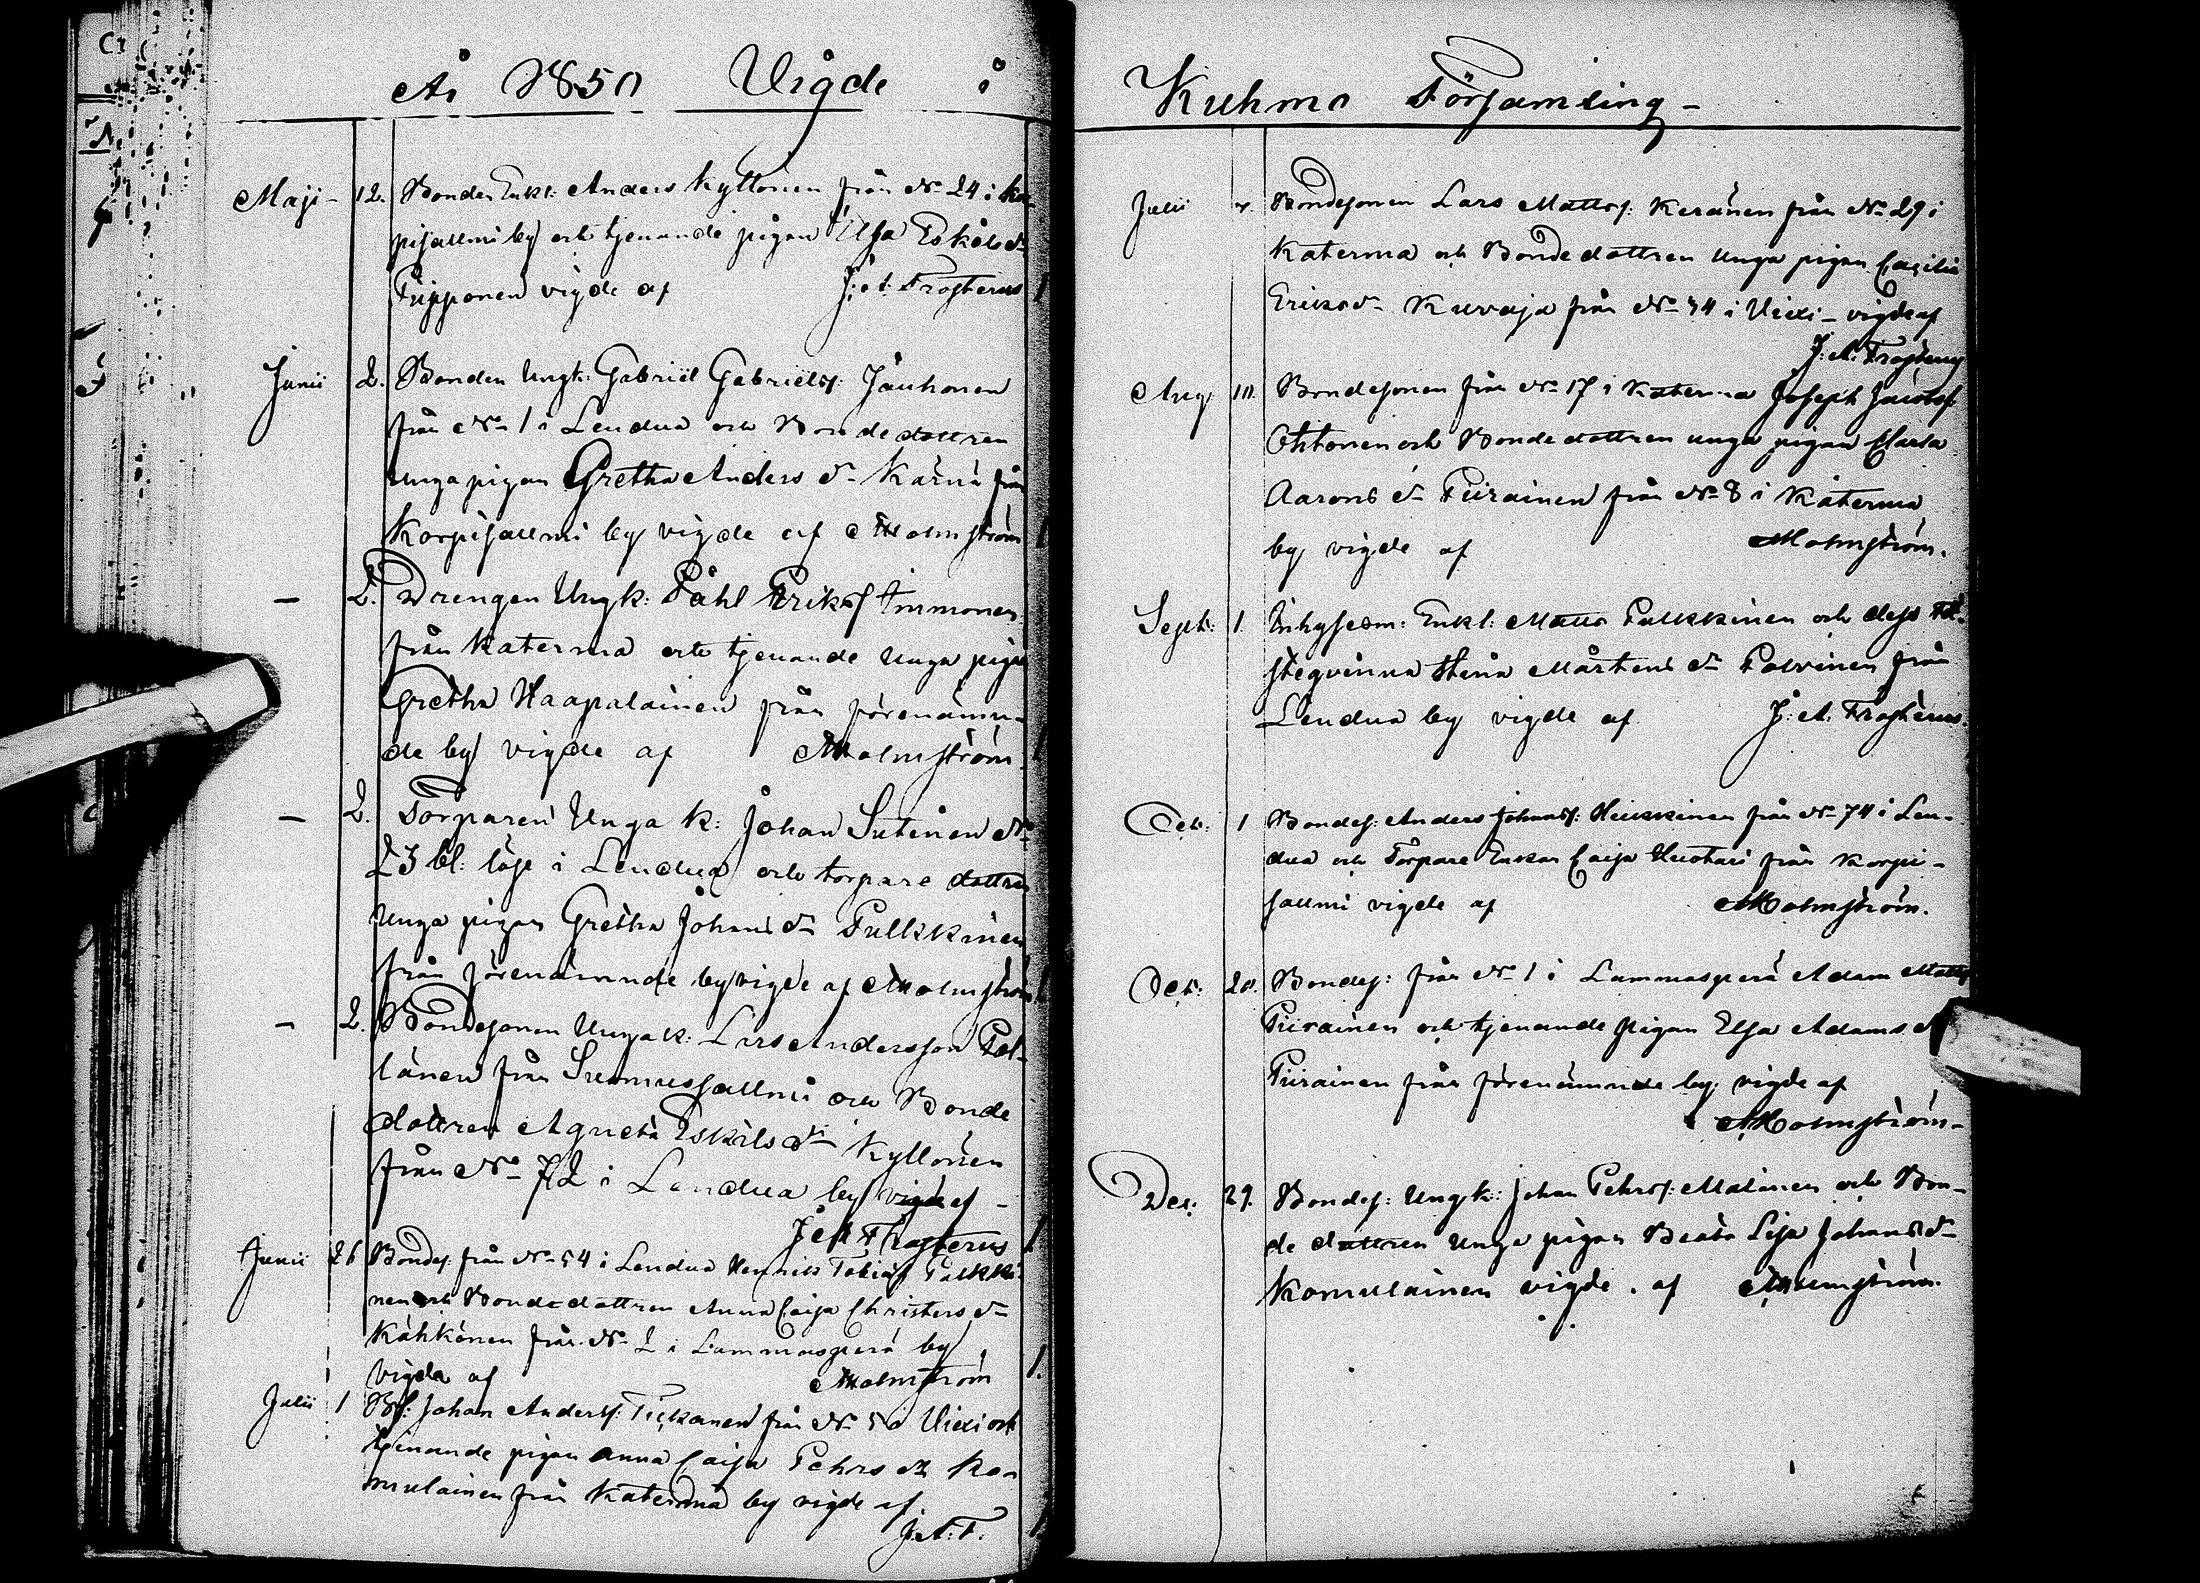 År 1850 Vigde i
Maji 12. Bonden Enkl: Anders Kyllönen från No 24 i Kor-
pisallmi by och tjenande pigan Elsa Eskelsdr
Piipponen vigde af J: A: Frosterus
Junii 2. Bonden Ungk: Gabriel Gabrielss: Jauhonen
från No 1 i Lendua och Bonde dottren
unga pigan Gretha Anders dr Kärnä från
Korpisallmi by vigde af Malmström
— 2. Drengen Ungk: Påhl Erikss Immonen
från Katerma och tjenande unga pigan
Gretha Haapalainen från förenämn-
de by vigde af Malmström.
— 2. Torparen Unga k: Johan Sutinen No
23 bl: löse i Lendua och torpare dottren
Unga pigan Gretha Johans dr Pulkkinen
från förenämnde by vigde af Malmström
— 2. Bondesonen Unga k: Lars Andersson
länen från Suomussallmi och Bonde
dottren Agneta Eskils dr Kyllönen
från No 72 i Lendua by vigde af
J: A: Frosterus
Junii 26 Bondes: från No 54 i Lendua Henrik Tobiass Pulkki-
nen och Bonde dottren Anna Caisa Christers dr
Kähkönen från No 2 i Lammasperä by
vigda af Malmström 1.
Julii 1 Bs: Johan Anderss: Tickanen från No 5 i Viexi och
tjenande pigan Anna Caisa Pehrs dr Ko-
mulainen från Katerma by vigde af.
J. A: F.
Kuhmo Församling
Julii Bondesonen Lars Mattss: Keränen från No 29 i
Katerma och Bonde dottren unga pigan Caecilia
Eriksdr Kuvaja från No 54 i Viexi vigde af
J: A: Frosterus
Aug 10. Bondesonen från No 17 i Katerma Joseph Jacobss
Ohtonen och Bonde dottren unga pigan Maria
Aarons dr Piirainen från No 8 i Katerma
by vigde af Malmström.
Sept: 1. Inhysesm: Enkl: Matts Pulkkinen och dess Fä-
steqvinna Stina Mårtens dr Polvinen från
Lendua by vigde af J: A: Frosterus.
Oct: 1 Bondes: Anders Johanss: Heikkinen från No 74 i Len-
dua och Torpare Enkan Caisa Huotari från Korpi-
sallmi vigde af Malmström.
Oct: 20. Bondes: från No 1 i Lammasperä Adam Mattss
Piirainen och tjenande pigan Elsa Adams dr
Piirainen från förenämnde by. vigde af
Malmström
Dec: 29. Bondes: Ungk: Johan Pehrss: Malinen och Bon-
de dottren Unga pigan Beata Lisa Johans dr
Komulainen vigde. af Malmström.